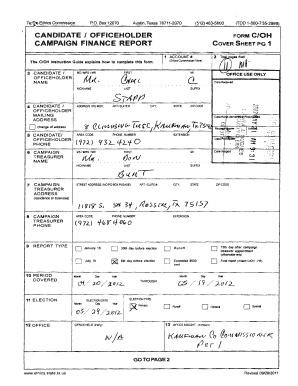 Texas Ethics Commission P.O. Box 12070 Austin, Texas 78711-2070 (512) 463-5800 (TDD 1-800-735-2989)
CANDIDATE / OFFICEHOLDER FORM C/OH
CAMPAIGN FINANCE REPORT COVER SHEET PG 1
The C/OH Instruction Guide explains how to complete this form.
1 ACCOUNT # (Ethics Commission filers)
2 Total pages filed:
3 CANDIDATE / OFFICEHOLDER NAME
MS / MRS / MR FIRST MI
Mr. C
NICKNAME LAST SUFFIX
Stapp
OFFICE USE ONLY
Date Received
4 CANDIDATE / OFFICEHOLDER MAILING ADDRESS
Change of address
ADDRESS / PO BOX; APT / SUITE #; CITY; STATE; ZIP CODE
5 CANDIDATE/ OFFICEHOLDER PHONE
AREA CODE PHONE NUMBER EXTENSION
(972) 932 4240
6 CAMPAIGN TREASURER NAME
MS / MRS / MR FIRST MI
Mr. Don
NICKNAME LAST SUFFIX
Burt
7 CAMPAIGN TREASURER ADDRESS
(residence or business)
STREET ADDRESS (NO PO BOX PLEASE); APT / SUITE #; CITY; STATE; ZIP CODE
11818 S. 34, Rosser, TX 75157
8 CAMPAIGN TREASURER PHONE
AREA CODE PHONE NUMBER EXTENSION
(972) 468 4060
9 REPORT TYPE
January 15 30th day before election Runoff 15th day after campaign treasurer appointment (officeholder only)
July 15 8th day before election Exceeded $500 limit Final report (Attach C/OH - FR)
10 PERIOD COVERED
Month Day Year THROUGH Month Day Year
04/20/2012 05/19/2012
11 ELECTION
ELECTION DATE ELECTION TYPE
Month Day Year
05/29/2012
Primary Runoff General Special
12 OFFICE
OFFICE HELD (if any)
N/A
13 OFFICE SOUGHT (if known)
Kaufman Co Commissioner
Pct 1
GO TO PAGE 2
www.ethics.state.tx.us Revised 09/28/2011